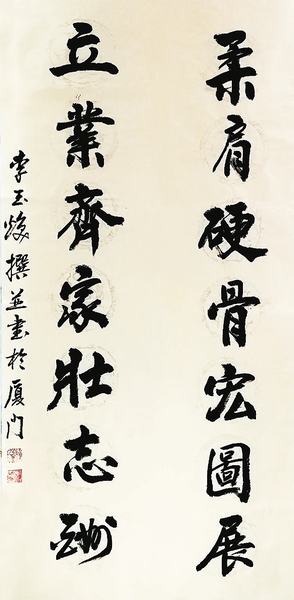 柔肩硬骨宏圖展
立業齊家壯志酬
李玉焌撰並書於厦门